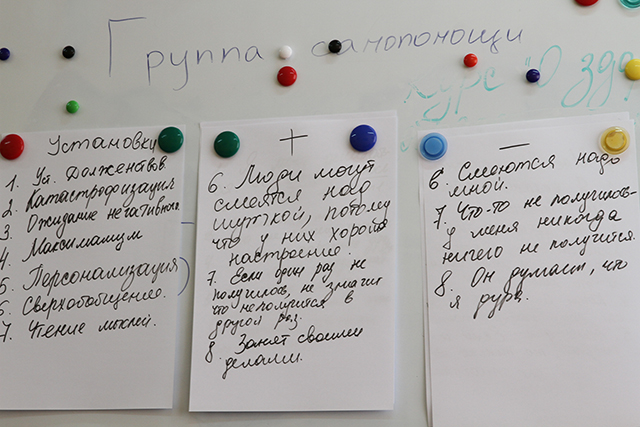 Группа самопомощи
курс "О здо
Установки
1. Уст. Долженствов.
2. Катастрофизация
3. Ожидание негативного
4. Максимализм
5. Персонализация
6. Сверхобобщение.
7. Чтение мыслей.
+
6. Люди могут
смеятся над
шуткой, потому
что у них хорошее
настроение.
7. Если один раз не
получилось, не значит
что не получится в
другой раз.
8. Занят своими
делами.
–
6. Смеются надо
мной.
7. Что-то не получилось-
у меня никогда
ничего не получится.
8. Он думает, что
я дура.